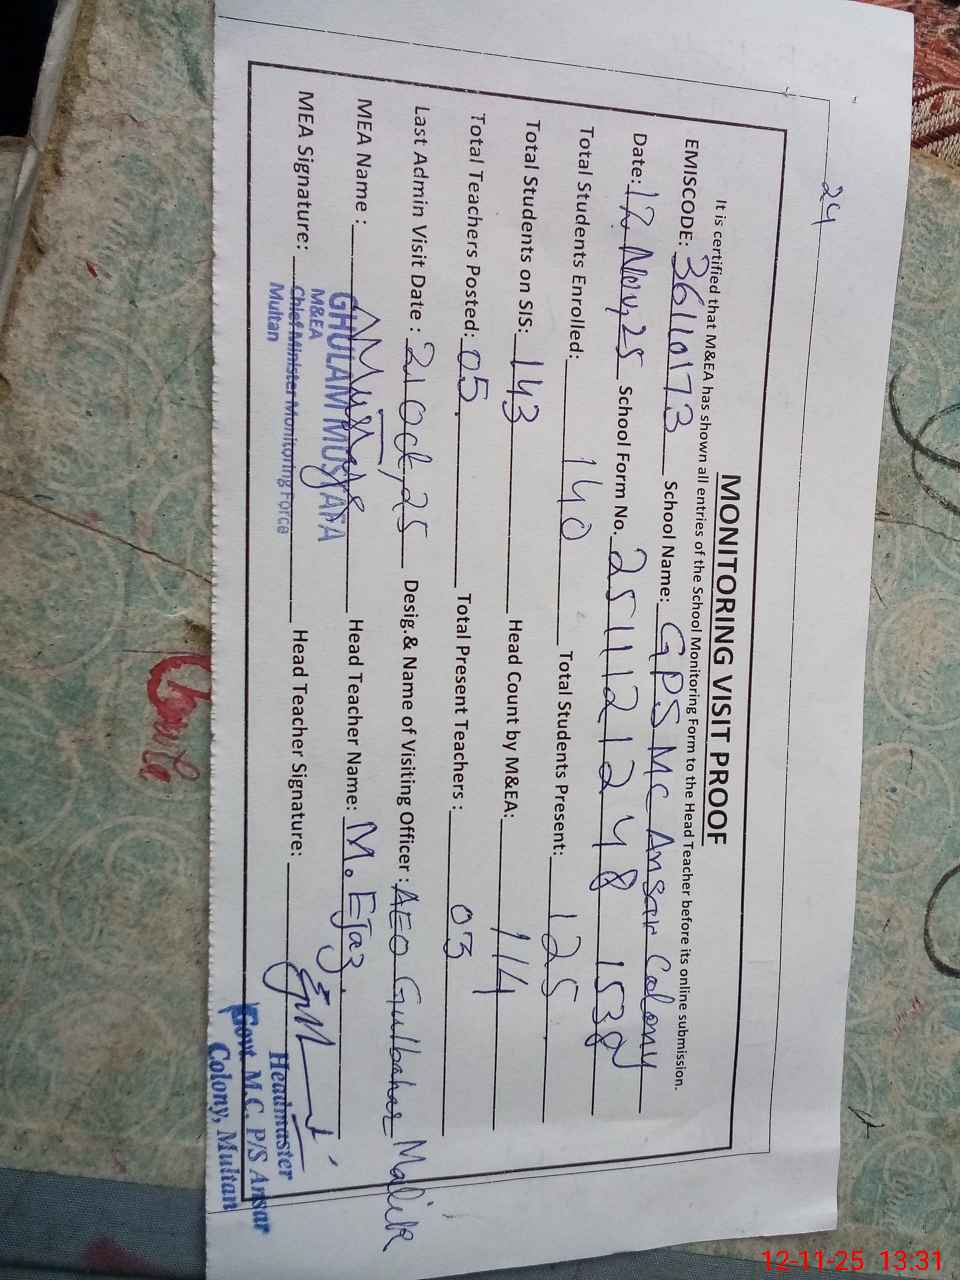 24
MONITORING VISIT PROOF
It is certified that M&EA has shown all entries of the School Monitoring Form to the Head Teacher before its online submission.
EMISCODE: 36110173 School Name: GPS MC Ansar Colony
Date: 12 Nov, 25 School Form No. 2511121248 153
Total Students Enrolled: 140 Total Students Present: 125
Total Students on SIS: 143 Head Count by M&EA: 114
Total Teachers Posted: 05 Total Present Teachers : 03
Last Admin Visit Date : 21 Oct, 25 Desig.& Name of Visiting Officer : AEO Gulbahar Malik
MEA Name : Head Teacher Name: M. Ejaz
GHULAM MUSTAFA
M&EA
MEA Signature: Head Teacher Signature:
Chief Minister Monitoring Force
Multan
Headmaster
Govt M.C. P/S Ansar
Colony, Multan
12-11-25 13:31